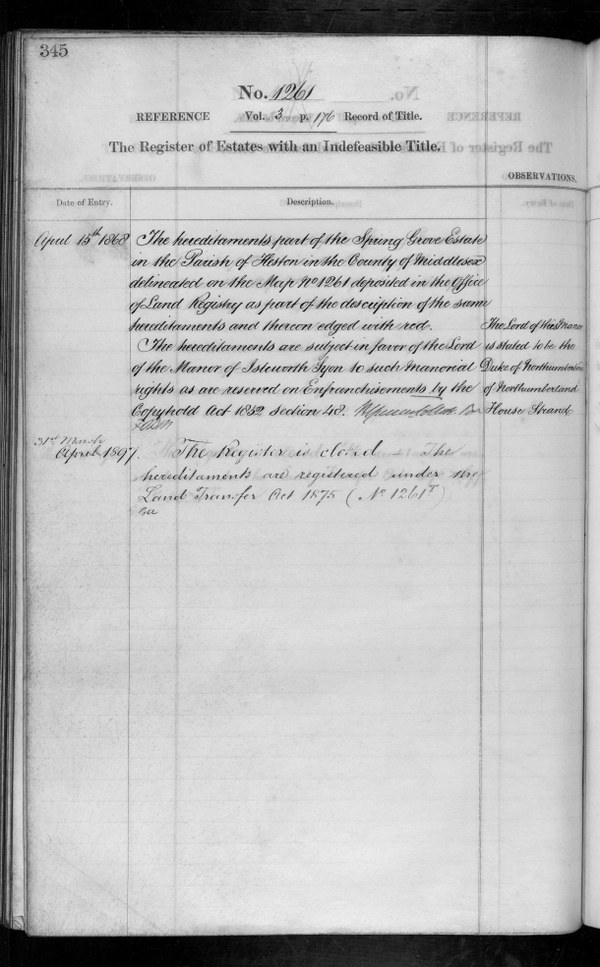 345
No. 1261
REFERENCE Vol. 3 p. 176 Record of Title.
The Register of Estates with an Indefeasible Title.
OBSERVATIONS.
Date of Entry. Description.
April 15th 1868 The hereditaments part of the Spring Grove Estate
in the Parish of Heston in the County of Middlesex
delineated on the Map No 1261 deposited in the Office
of Land Registry as part of the description of the same
hereditaments and thereon edged with red.
The hereditaments are subject in favor of the Lord
of the Manor of Isleworth Syon to such manorial
rights as are reserved on Enfranchisements by the
Copyhold Act 1852 Section 48.
The Lord of this Manor
is stated to be the
Duke of Northumberland
of Northumberland
House Strand
31st March
April 1897. The Register is closed – The
hereditaments are registered under the
Land Transfer Act 1875 (No 1261T)